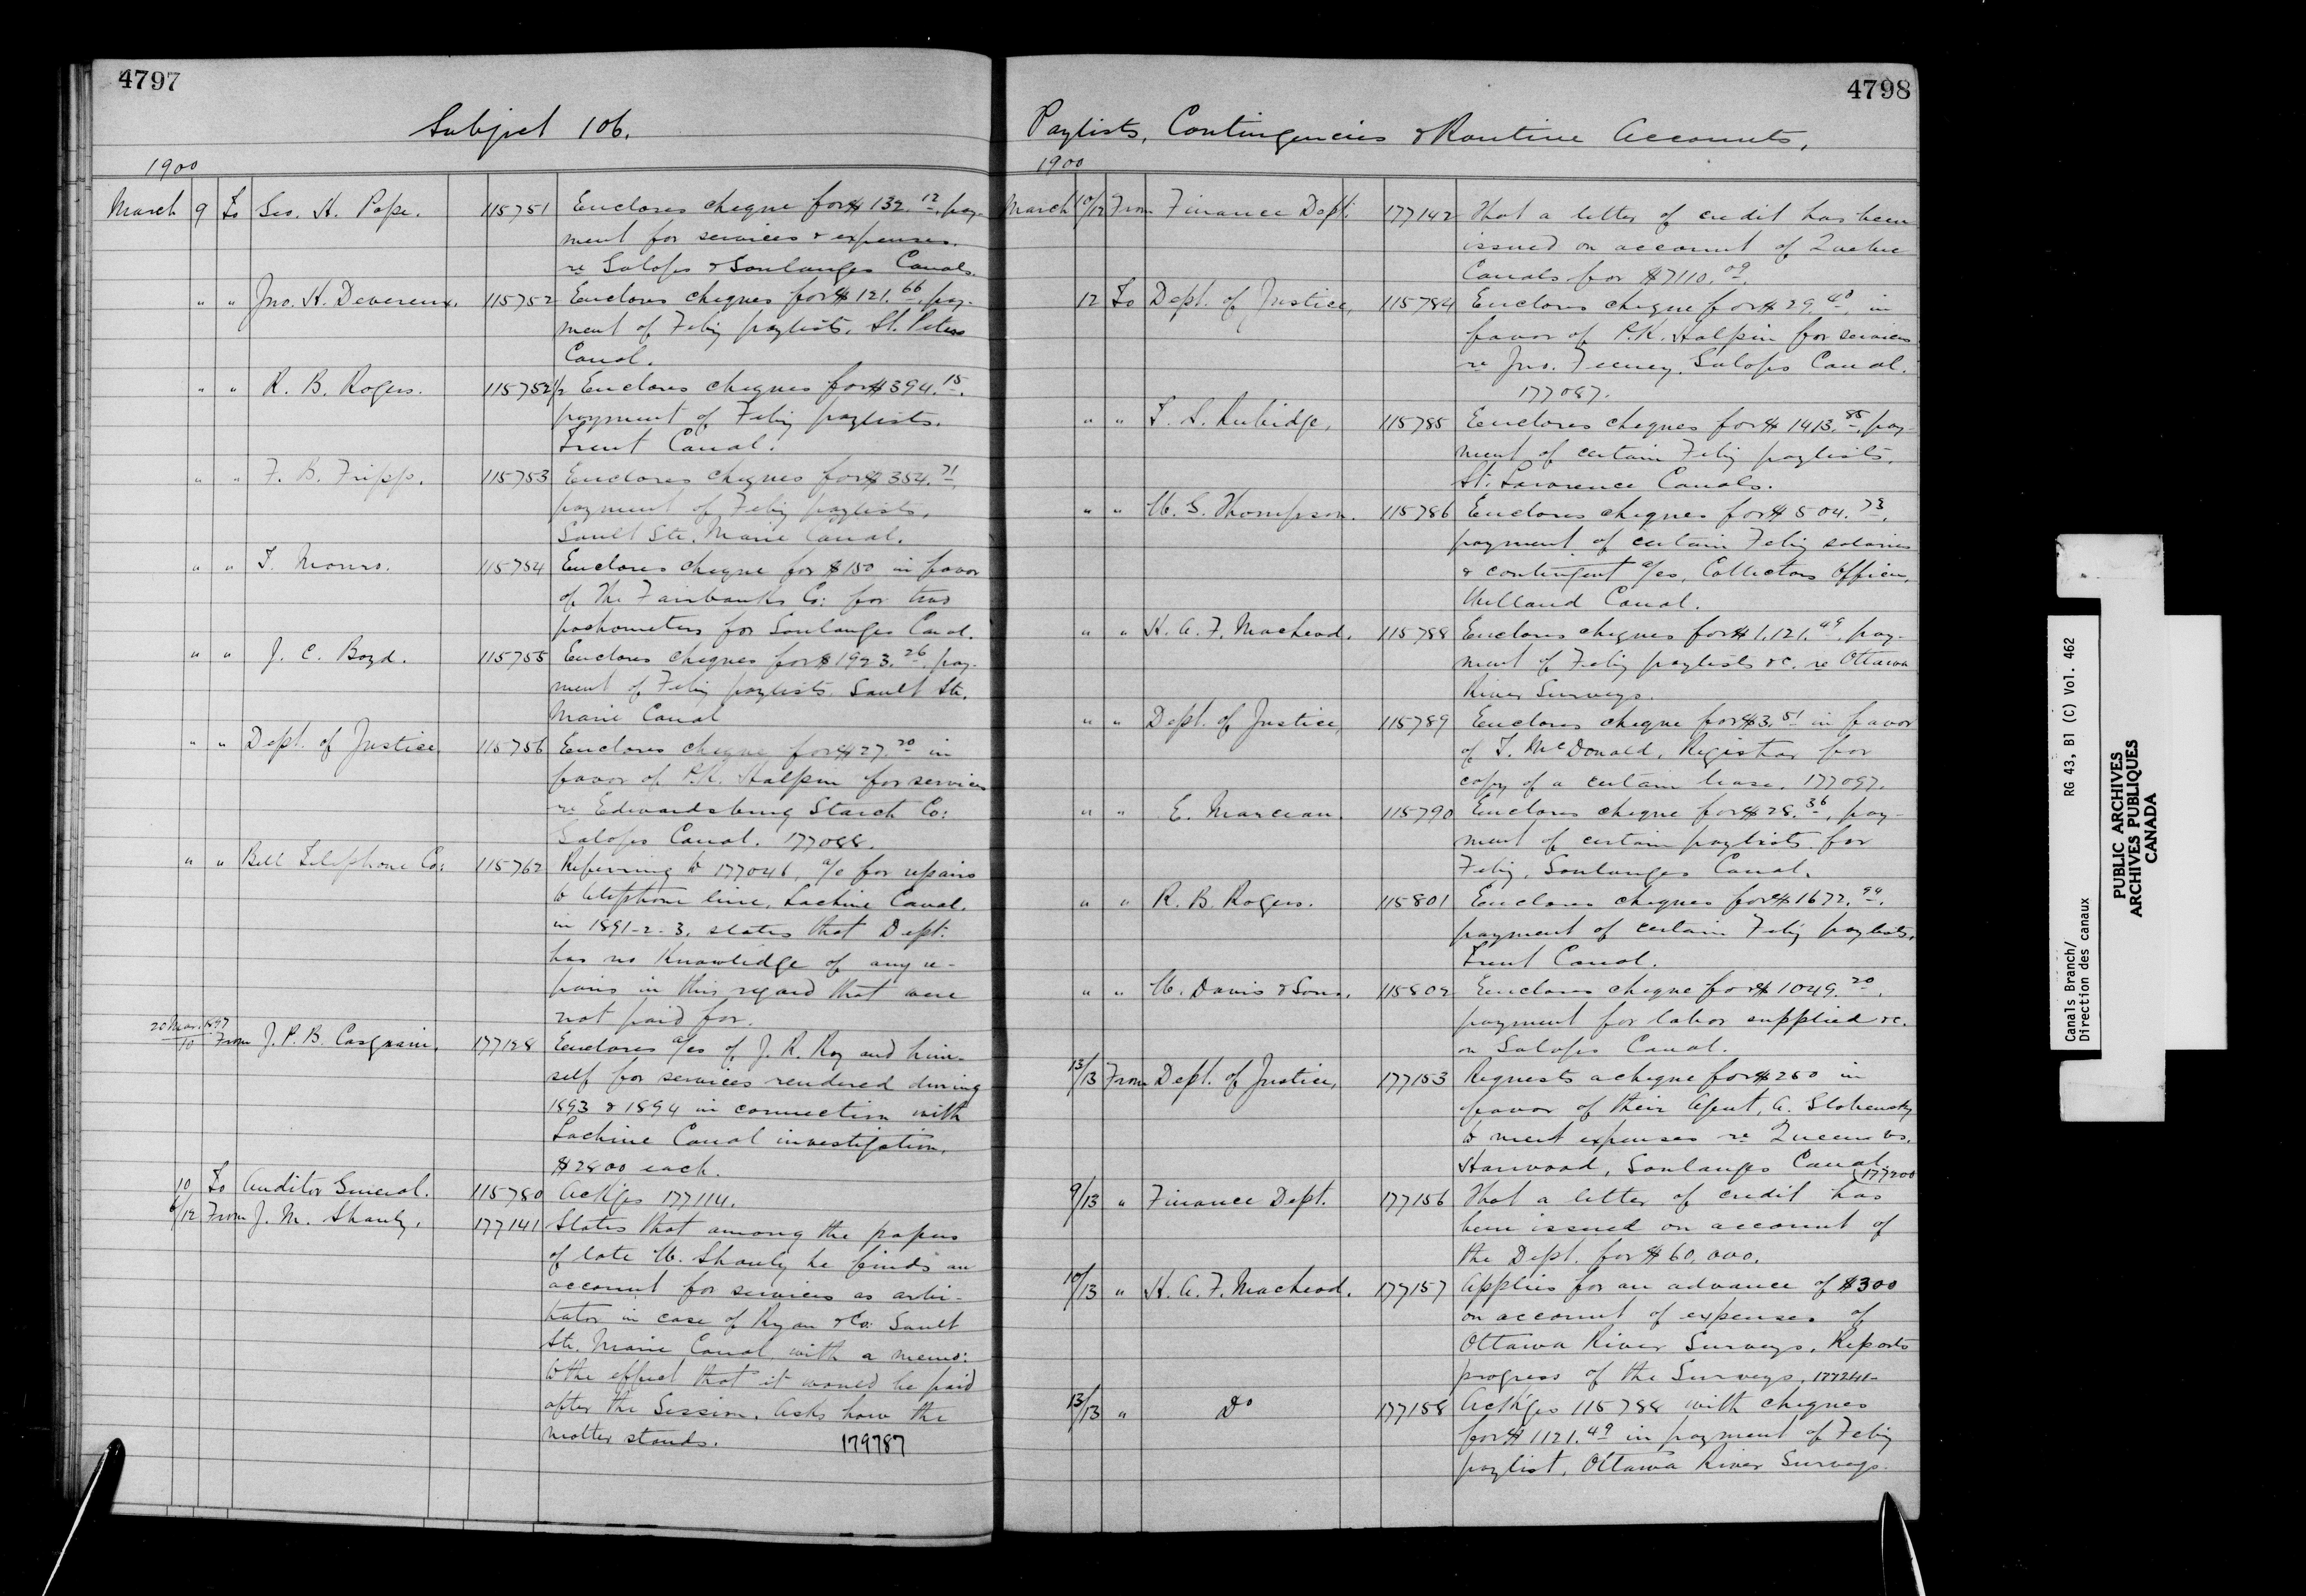 4797
Subject 106.
1900
March 9 To Geo. H. Pope. 115751 Encloses cheque for $132.12, pay-
ment for services & expenses
re Galops & Soulanges Canals.
" " Jno. H. Devereux. 115752 Encloses cheques for $121.66, pay-
ment of Feby paylists, St. Peters
Canal.
" " R. B. Rogers. 115752½ Encloses cheques for $394.15.
payment of Feby paylists.
Trent Canal.
" " F. B. Fripp. 115753 Encloses cheques for $354.71,
payment of Feby paylists,
Sault Ste. Marie Canal.
" " T. Monro. 115754 Encloses cheque for $150 in favor
of The Fairbanks Co: for two
pachometers for Soulanges Canal.
" " J. C. Boyd. 115755 Encloses cheques for $1923.26, pay-
ment of Feby paylists. Sault Ste.
Marie Canal
" " Dept. of Justice 115756 Encloses cheque for $27.20 in
favor of P.K. Halpin for services
re Edwardsburg Starch Co:
Galops Canal. 177088.
" " Bell Telephone Co: 115762 Referring to 177046, a/c for repairs
to telephone line, Lachine Canal,
in 1891-2-3, states that Dept.
has no knowledge of any re-
pairs in this regard that were
not paid for.
20 Mar. 1897
10 From J. P. B. Casgrain. 177128 Encloses a/cs of J. R. Roy and him-
self for services rendered during
1893 & 1894 in connection with
Lachine Canal investigation,
$2800 each.
10 To Auditor General. 115780 Ackges 177114.
6/12 From J. M. Shanly. 177141 States that among the papers
of late W. Shanly he finds an
account for services as arbi-
trator in case of Ryan & Co: Sault
Ste. Marie Canal, with a memo:
to the effect that it would be paid
after the Session. Asks how the
matter stands. 179787
4798
Paylists, Contingencies & Routine Accounts,
1900
March 10/12 From Finance Dept. 177142 That a letter of credit has been
issued on account of Quebec
Canals for $7110.09.
12 To Dept. of Justice, 115784 Encloses cheque for $29.40, in
favor of P.K. Halpin for services
re Jno. Feeney, Galops Canal.
177087.
" " T. S. Rubidge, 115785 Encloses cheques for $1413.85, pay-
ment of certain Feby paylists,
St. Lawrence Canals.
" " W. G. Thompson. 115786 Encloses cheques for $504.73,
payment of certain Feby salaries
& contingent a/cs, Collectors Offices,
Welland Canal.
" " H. A. F. Macleod. 115788 Encloses cheques for $1,121.49, pay-
ment of Feby paylists &c. re Ottawa
River Surveys.
" " Dept. of Justice, 115789 Encloses cheque for $3.51 in favor
of T. McDonald, Registrar for
copy of a certain lease. 177097.
" " E. Marceau. 115790 Encloses cheque for $28.36, pay-
ment of certain paylists for
Feby, Soulanges Canal.
" " R. B. Rogers. 115801 Encloses cheques for $1672.94.
payment of certain Feby paylists,
Trent Canal.
" " W. Davis & Sons. 115802 Encloses cheque for $1049.20.
payment for labor supplied &c.
on Galops Canal.
13/13 From Dept. of Justice, 177153 Requests a cheque for $250 in
favor of their Agent, A.
to meet expenses re Queen vs.
Harwood, Soulanges Canal.
177200
9/13 " Finance Dept. 177156 That a letter of credit has
been issued on account of
the Dept. for $60,000.
10/13 " H. A. F. Macleod. 177157 Applies for an advance of $300
on account of expenses of
Ottawa River Surveys. Reports
progress of the Surveys. 177241
13/13 " Do 177158 Ackges 115788 with cheques
for $1121.49 in payment of Feby
paylist, Ottawa River Surveys.
Canals Branch/ RG 43, B1 (C) Vol. 462
Direction des canaux
PUBLIC ARCHIVES
ARCHIVES PUBLIQUES
CANADA